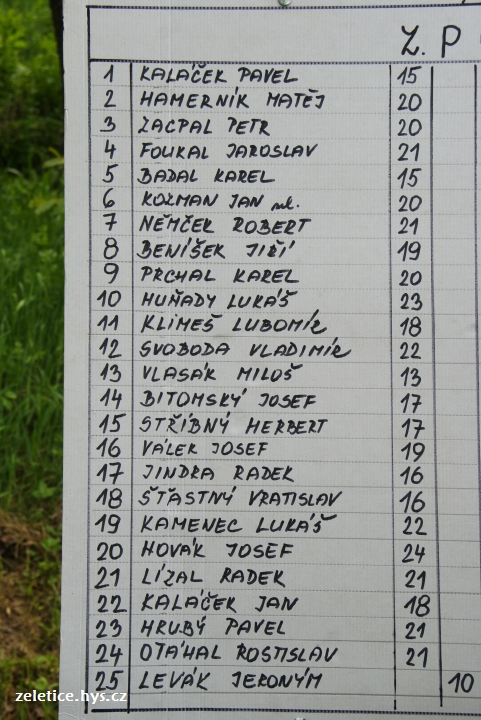 Z. P
1 KALÁČEK PAVEL 15
2 HAMERNÍK MATĚJ 20
3 ZACPAL PETR 20
4 FOUKAL JAROSLAV 21
5 BADAL KAREL 15
6 KOZMAN JAN ml. 20
7 NĚMČEK ROBERT 21
8 BENÍŠEK JIŘÍ 19
9 PRCHAL KAREL 20
10 HUŇADY LUKÁŠ 23
11 KLIMEŠ LUBOMÍR 18
12 SVOBODA VLADIMÍR 22
13 VLASÁK MILOŠ 13
14 BITOMSKÝ JOSEF 17
15 STŘÍBNÝ HERBERT 17
16 VÁLEK JOSEF 19
17 JINDRA RADEK 16
18 ŠŤASTNÝ VRATISLAV 16
19 KAMENEC LUKÁŠ 22
20 NOVÁK JOSEF 24
21 LÍZAL RADEK 21
22 KALÁČEK JAN 18
23 HRUBÝ PAVEL 21
24 OTÁHAL ROSTISLAV 21
25 LEVÁK JERONÝM 10
zeletice.hys.cz